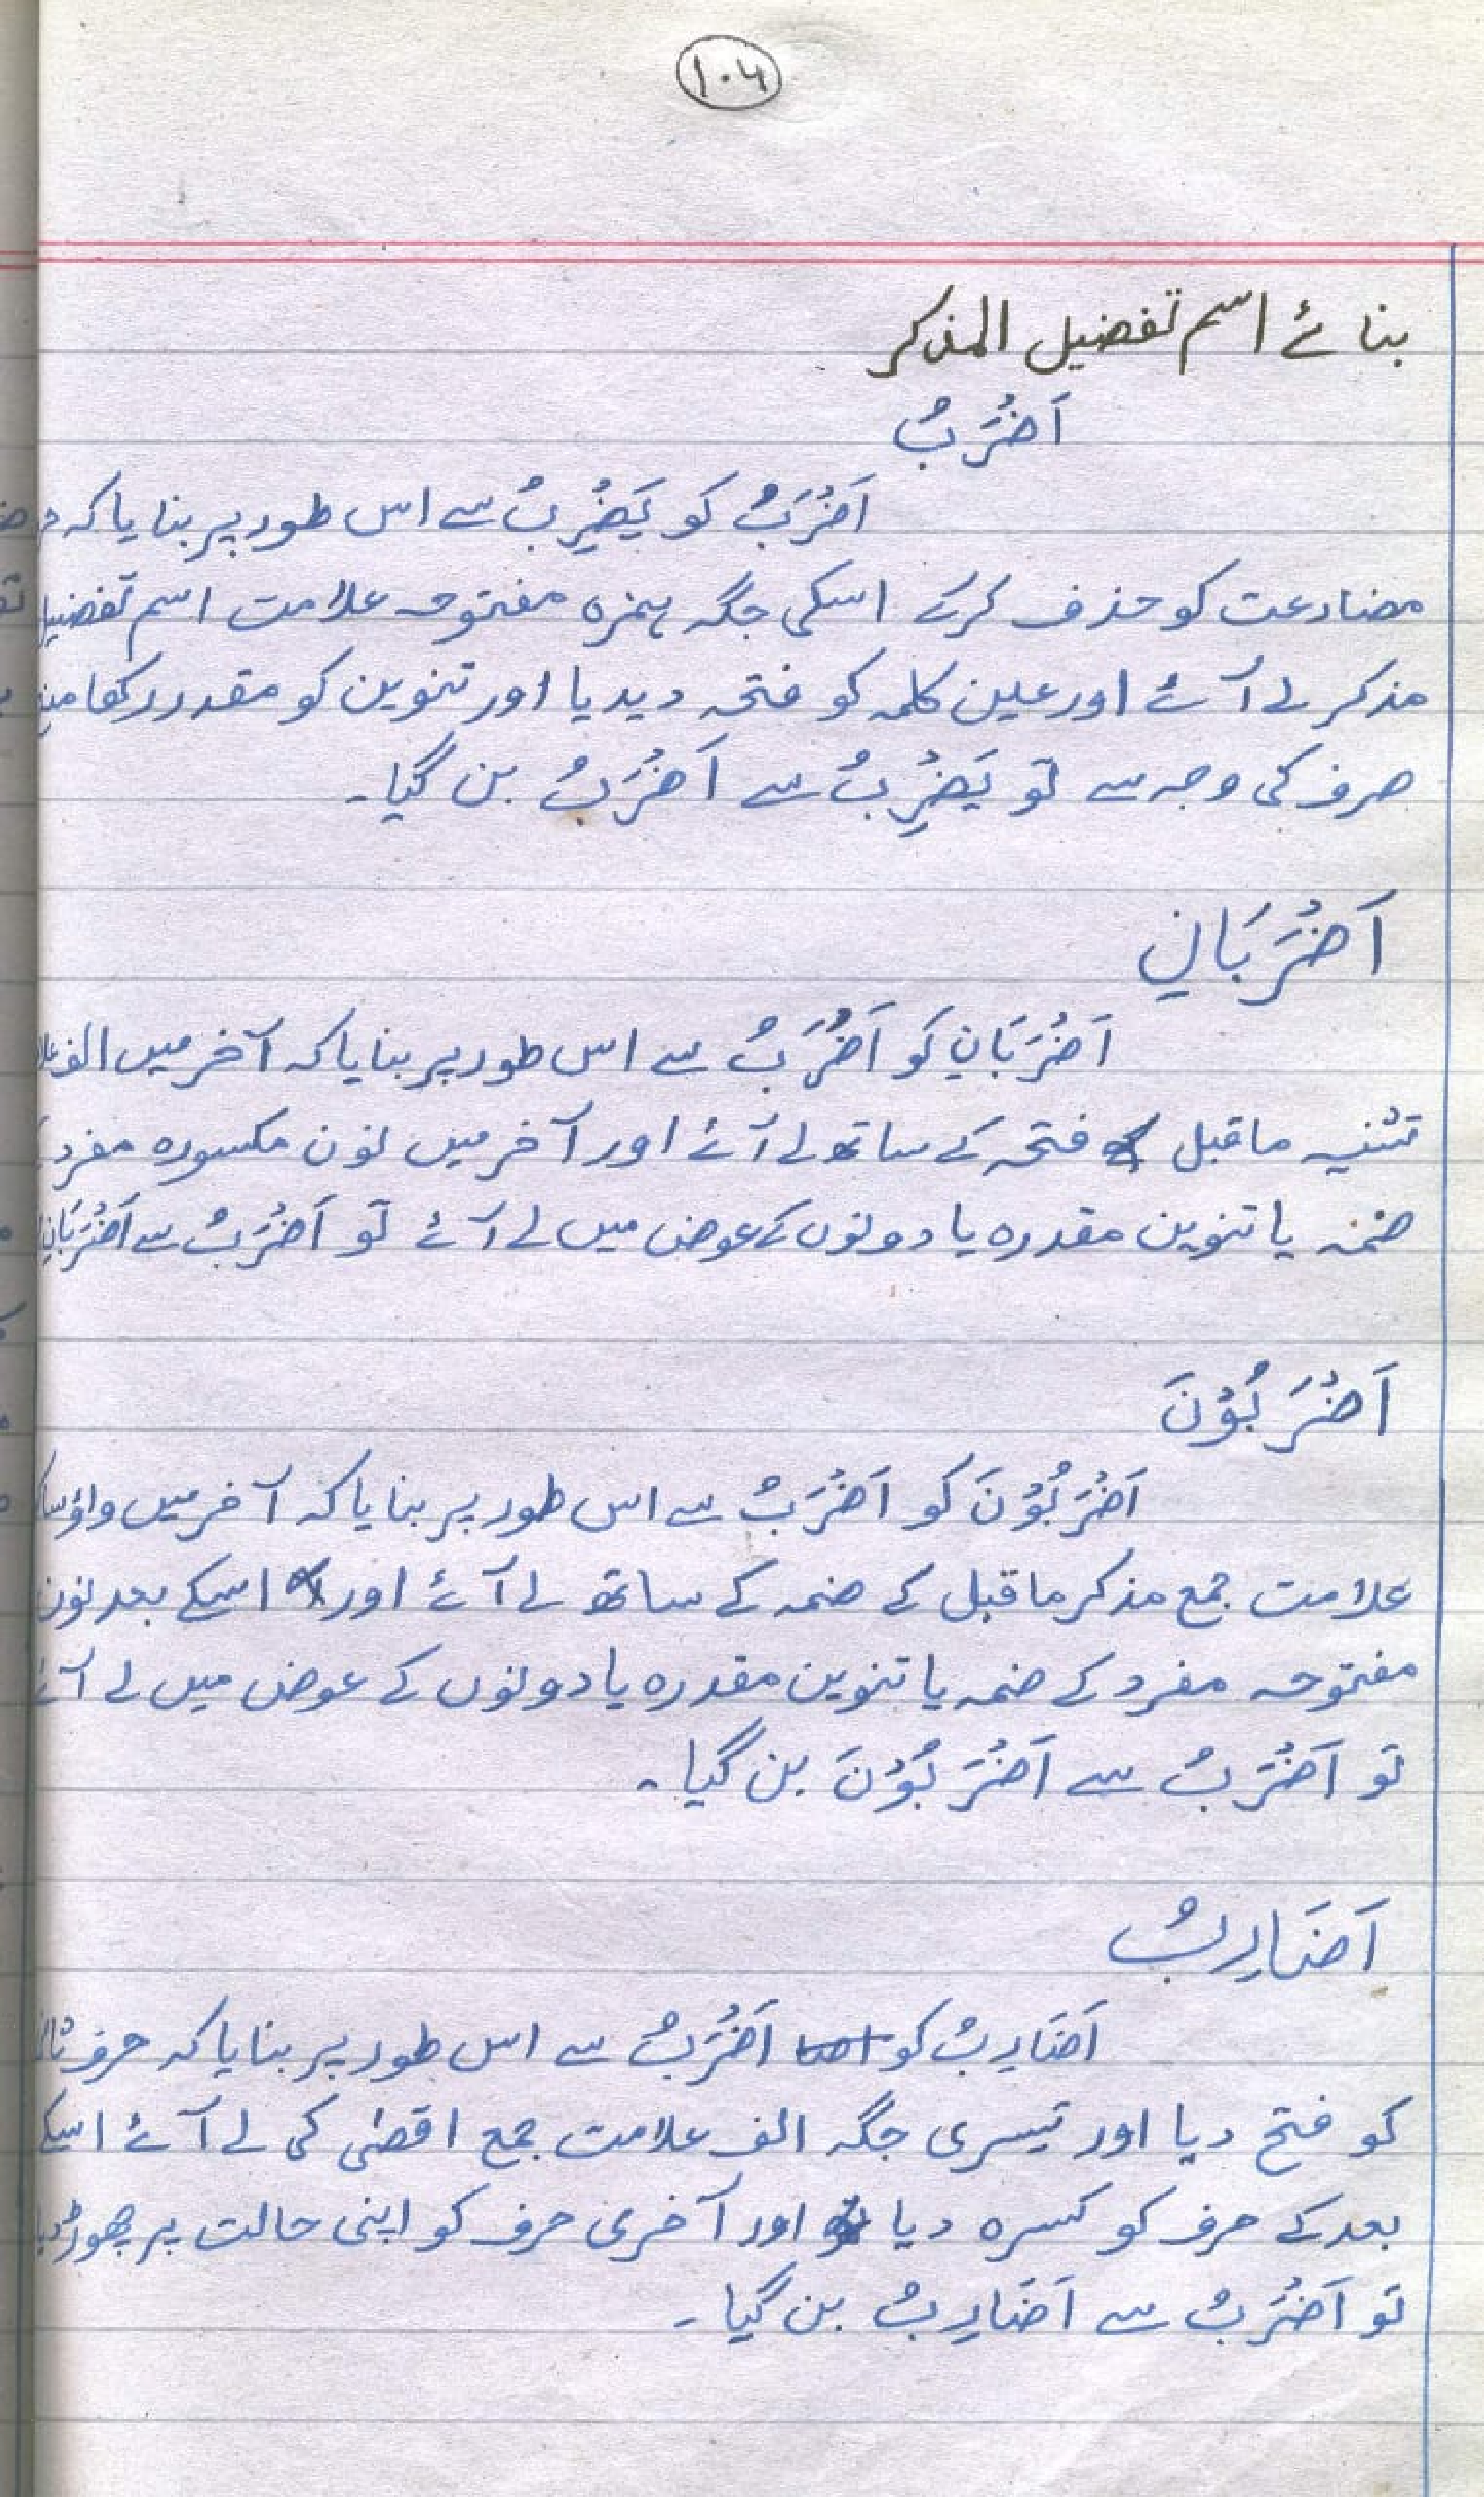 ۱۰۴
بنائے اسم تفضیل المذکر
اَضْرَبُ
اَضْرَبُ کو یَضْرِبُ سے اس طور پر بنایا کہ
مضارعت کو حذف کرکے اسکی جگہ ہمزہ مفتوحہ علامت اسم تفضیل
مذکر لے آئے اور عین کلمہ کو فتحہ دیدیا اور تنوین کو مقدر رکھا
صرف کی وجہ سے تو یَضْرِبُ سے اَضْرَبُ بن گیا۔
اَضْرَبَانِ
اَضْرَبَانِ کو اَضْرَبُ سے اس طور پر بنایا کہ آخر میں الف
تثنیہ ماقبل فتحہ کے ساتھ لے آئے اور آخر میں نون مکسورہ مفرد
ضمہ یا تنوین مقدرہ یا دونوں کے عوض میں لے آئے تو اَضْرَبُ سے اَضْرَبَانِ
اَضْرَبُوْنَ
اَضْرَبُوْنَ کو اَضْرَبُ سے اس طور پر بنایا کہ آخر میں واؤ
علامت جمع مذکر ماقبل کے ضمہ کے ساتھ لے آئے اور اسکے بعد نون
مفتوحہ مفرد کے ضمہ یا تنوین مقدرہ یا دونوں کے عوض میں لے آئے
تو اَضْرَبُ سے اَضْرَبُوْنَ بن گیا۔
اَضَارِبُ
اَضَارِبُ کو اَضْرَبُ سے اس طور پر بنایا کہ حرف
کو فتح دیا اور تیسری جگہ الف علامت جمع اقصٰی کی لے آئے اسکے
بعد کے حرف کو کسرہ دیا اور آخری حرف کو اپنی حالت پر چھوڑ دیا
تو اَضْرَبُ سے اَضَارِبُ بن گیا۔